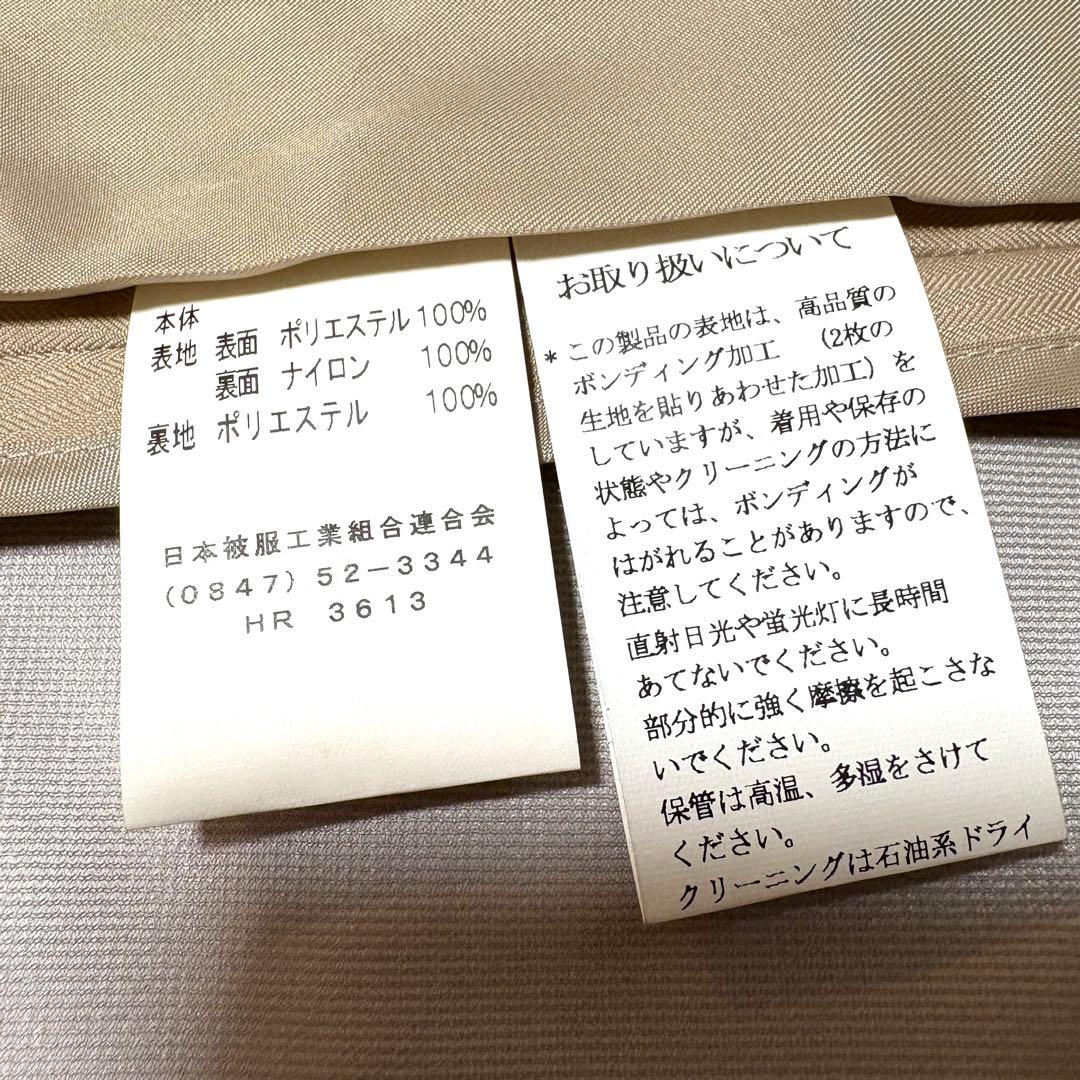 本体
表地 表面 ポリエステル100%
裏面 ナイロン 100%
裏地 ポリエステル 100%
日本被服工業組合連合会
(0847) 52-3344
HR 3613
お取り扱いについて
* この製品の表地は、高品質の
ボンディング加工 (2枚の
生地を貼りあわせた加工) を
していますが、着用や保存の
状態やクリーニングの方法に
よっては、ボンディングが
はがれることがありますので、
注意してください。
直射日光や蛍光灯に長時間
あてないでください。
部分的に強く摩擦を起こさな
いでください。
保管は高温、多湿をさけて
ください。
クリーニングは石油系ドライ